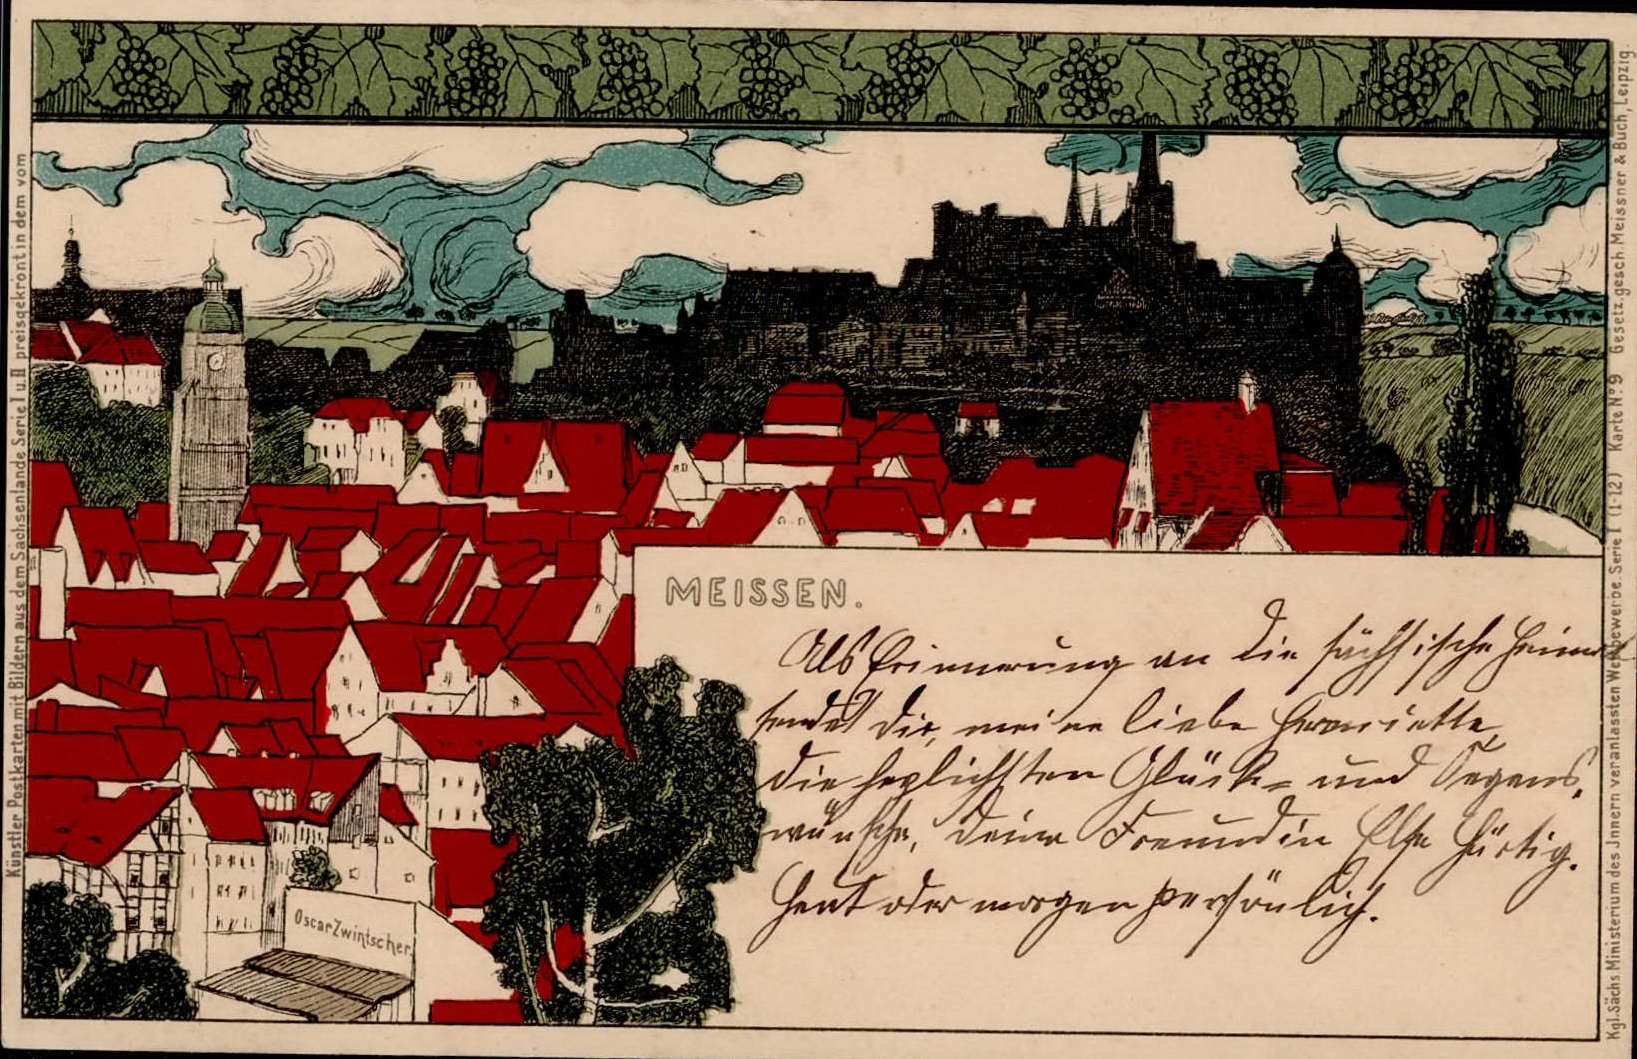 Künstler Postkarten mit Bildern aus dem Sachsenlande Serie I u. II preisgekrönt in dem vom
Kgl. Sächs Ministerium des Jnnern veranlassten Wettbewerbe. Serie I (1-12) Karte No. 9 Gesetz. gesch. Meissner & Buch, Leipzig.
MEISSEN.
Als Erinnerung an die sächsische Heimat
sendet dir, meine liebe Henriette,
die herzlichsten Glück= und Segens,
wünsche, deine Freundin Else Härtig.
Heut oder morgen persönlich.
Oscar Zwintscher